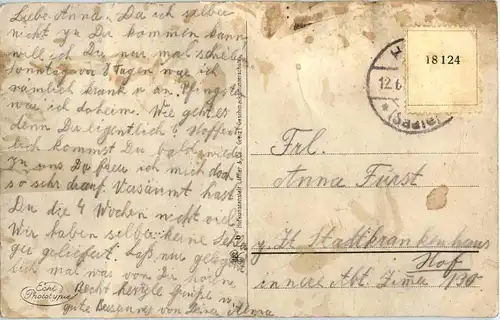 Liebe Anna! Da ich selber
nicht zu Dir kommen kann
will ich Dir nur mal schreiben
Sonntag vor 8 Tagen war ich
nämlich krank u. an Pfingsten
war ich daheim. Wie geht es
denn Dir eigentlich? Hoffent-
lich kommst Du bald wieder
zu uns Du freu ich mich doch
so sehr drauf. Versäumt hast
Du die 4 Wochen nicht viel
Wir haben selber keine
geliefert. Laß nur
bald mal was von Dir hören
Recht herzliche Grüße u.
gute Besserung von Deiner Anna
18124
12.6.
Frl.
Anna Fürst
z. Zt. Stadtkrankenhaus
Hof
innere Abt. Zimmer 130
Echt
Phototypie